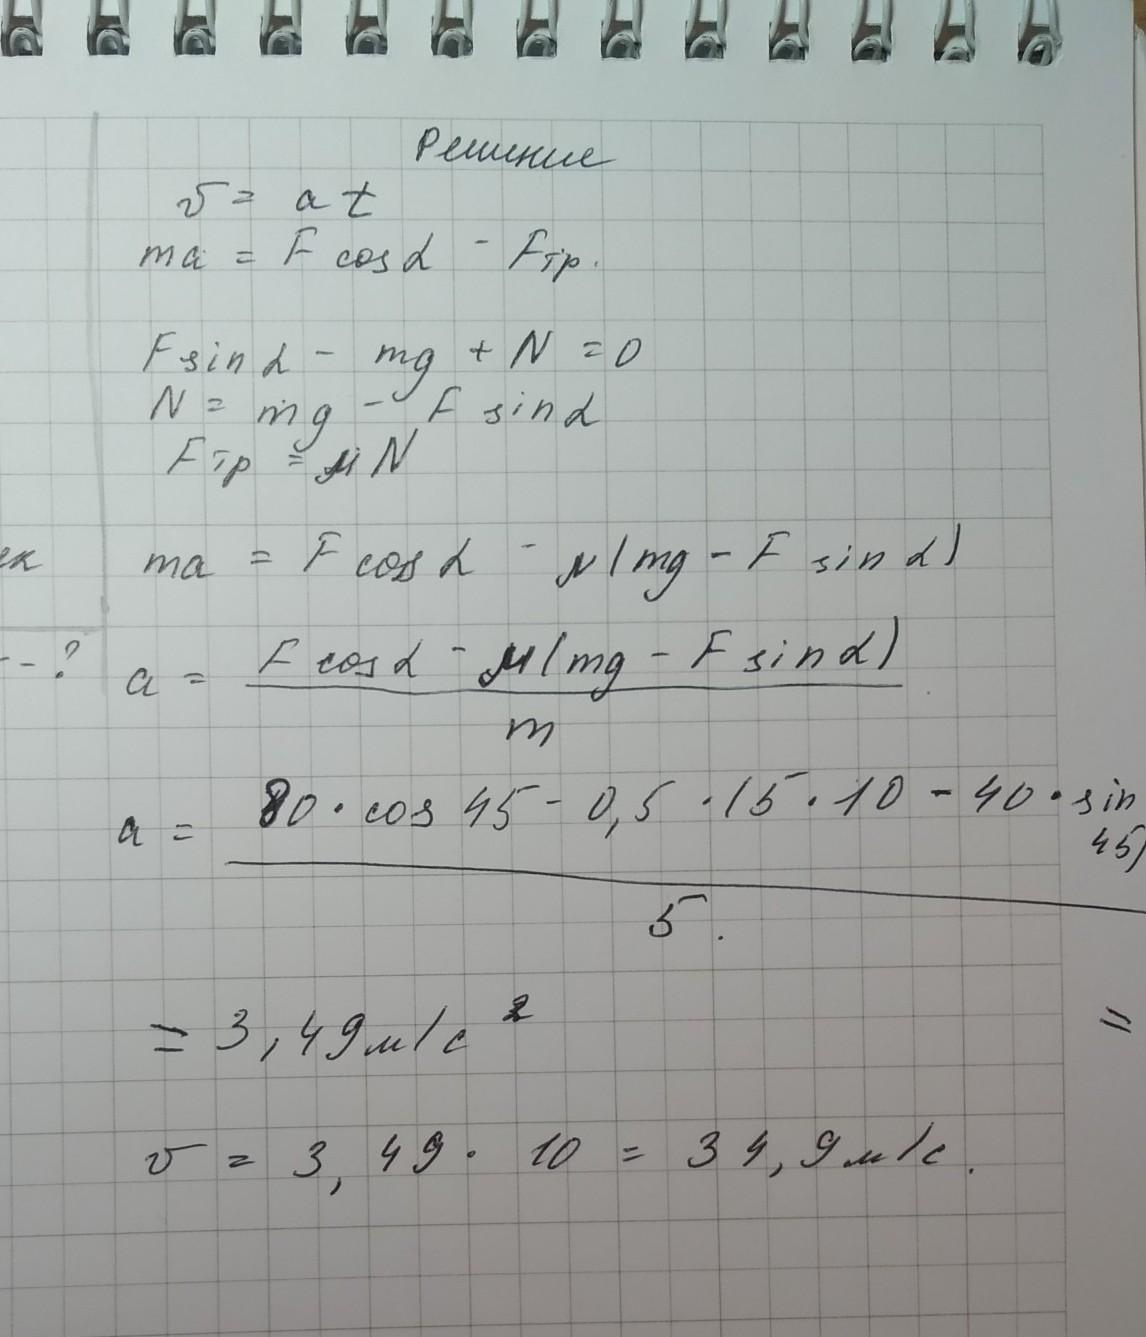 Решение
v = a t
ma = F cos α - Fтр.
F sin α - mg + N = 0
N = mg - F sin α
Fтр = μN
ma = F cos α - μ(mg - F sin α)
- - ?
a = F cos α - μ(mg - F sin α)
m
a = 80 · cos 45 - 0,5 · 15 · 10 - 40 · sin
45)
5.
= 3,49 м/с² =
v = 3,49 · 10 = 34,9 м/с.